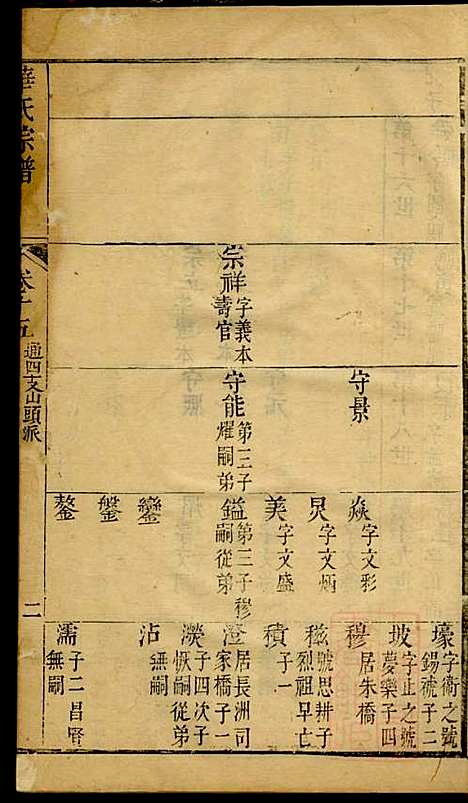 華氏宗譜
卷十五
通四支山頭派
二
宗祥 字義本
壽官
守景
守能 第三子
耀嗣弟
焱 字文彩
炅 字文炳
美 字文盛
鎰 第三子穆
嗣從弟
鑾
鎜
鏊
壕 字衛之號
錫號子二
坡 字止之號
慶樂子四
穆 居朱橋
磁 號思耕子
烈祖早亡
積 子一
澄 居長洲司
家橋子一
濴 子四次子
恢嗣從弟
沾 無嗣
濡 子二昌賢
無嗣